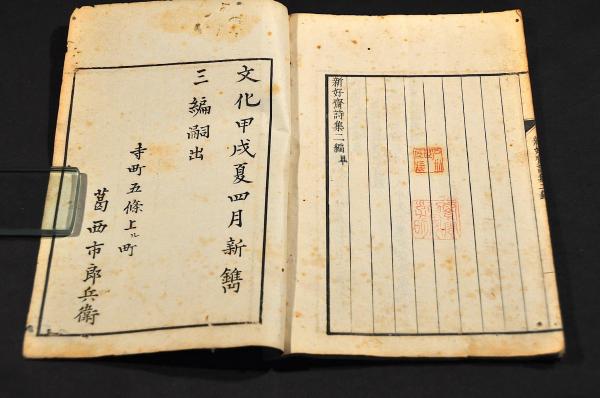 新好齋詩集二編畢
文化甲戌夏四月新鐫
三編嗣出
寺町五條上ル町
葛西市郎兵衛